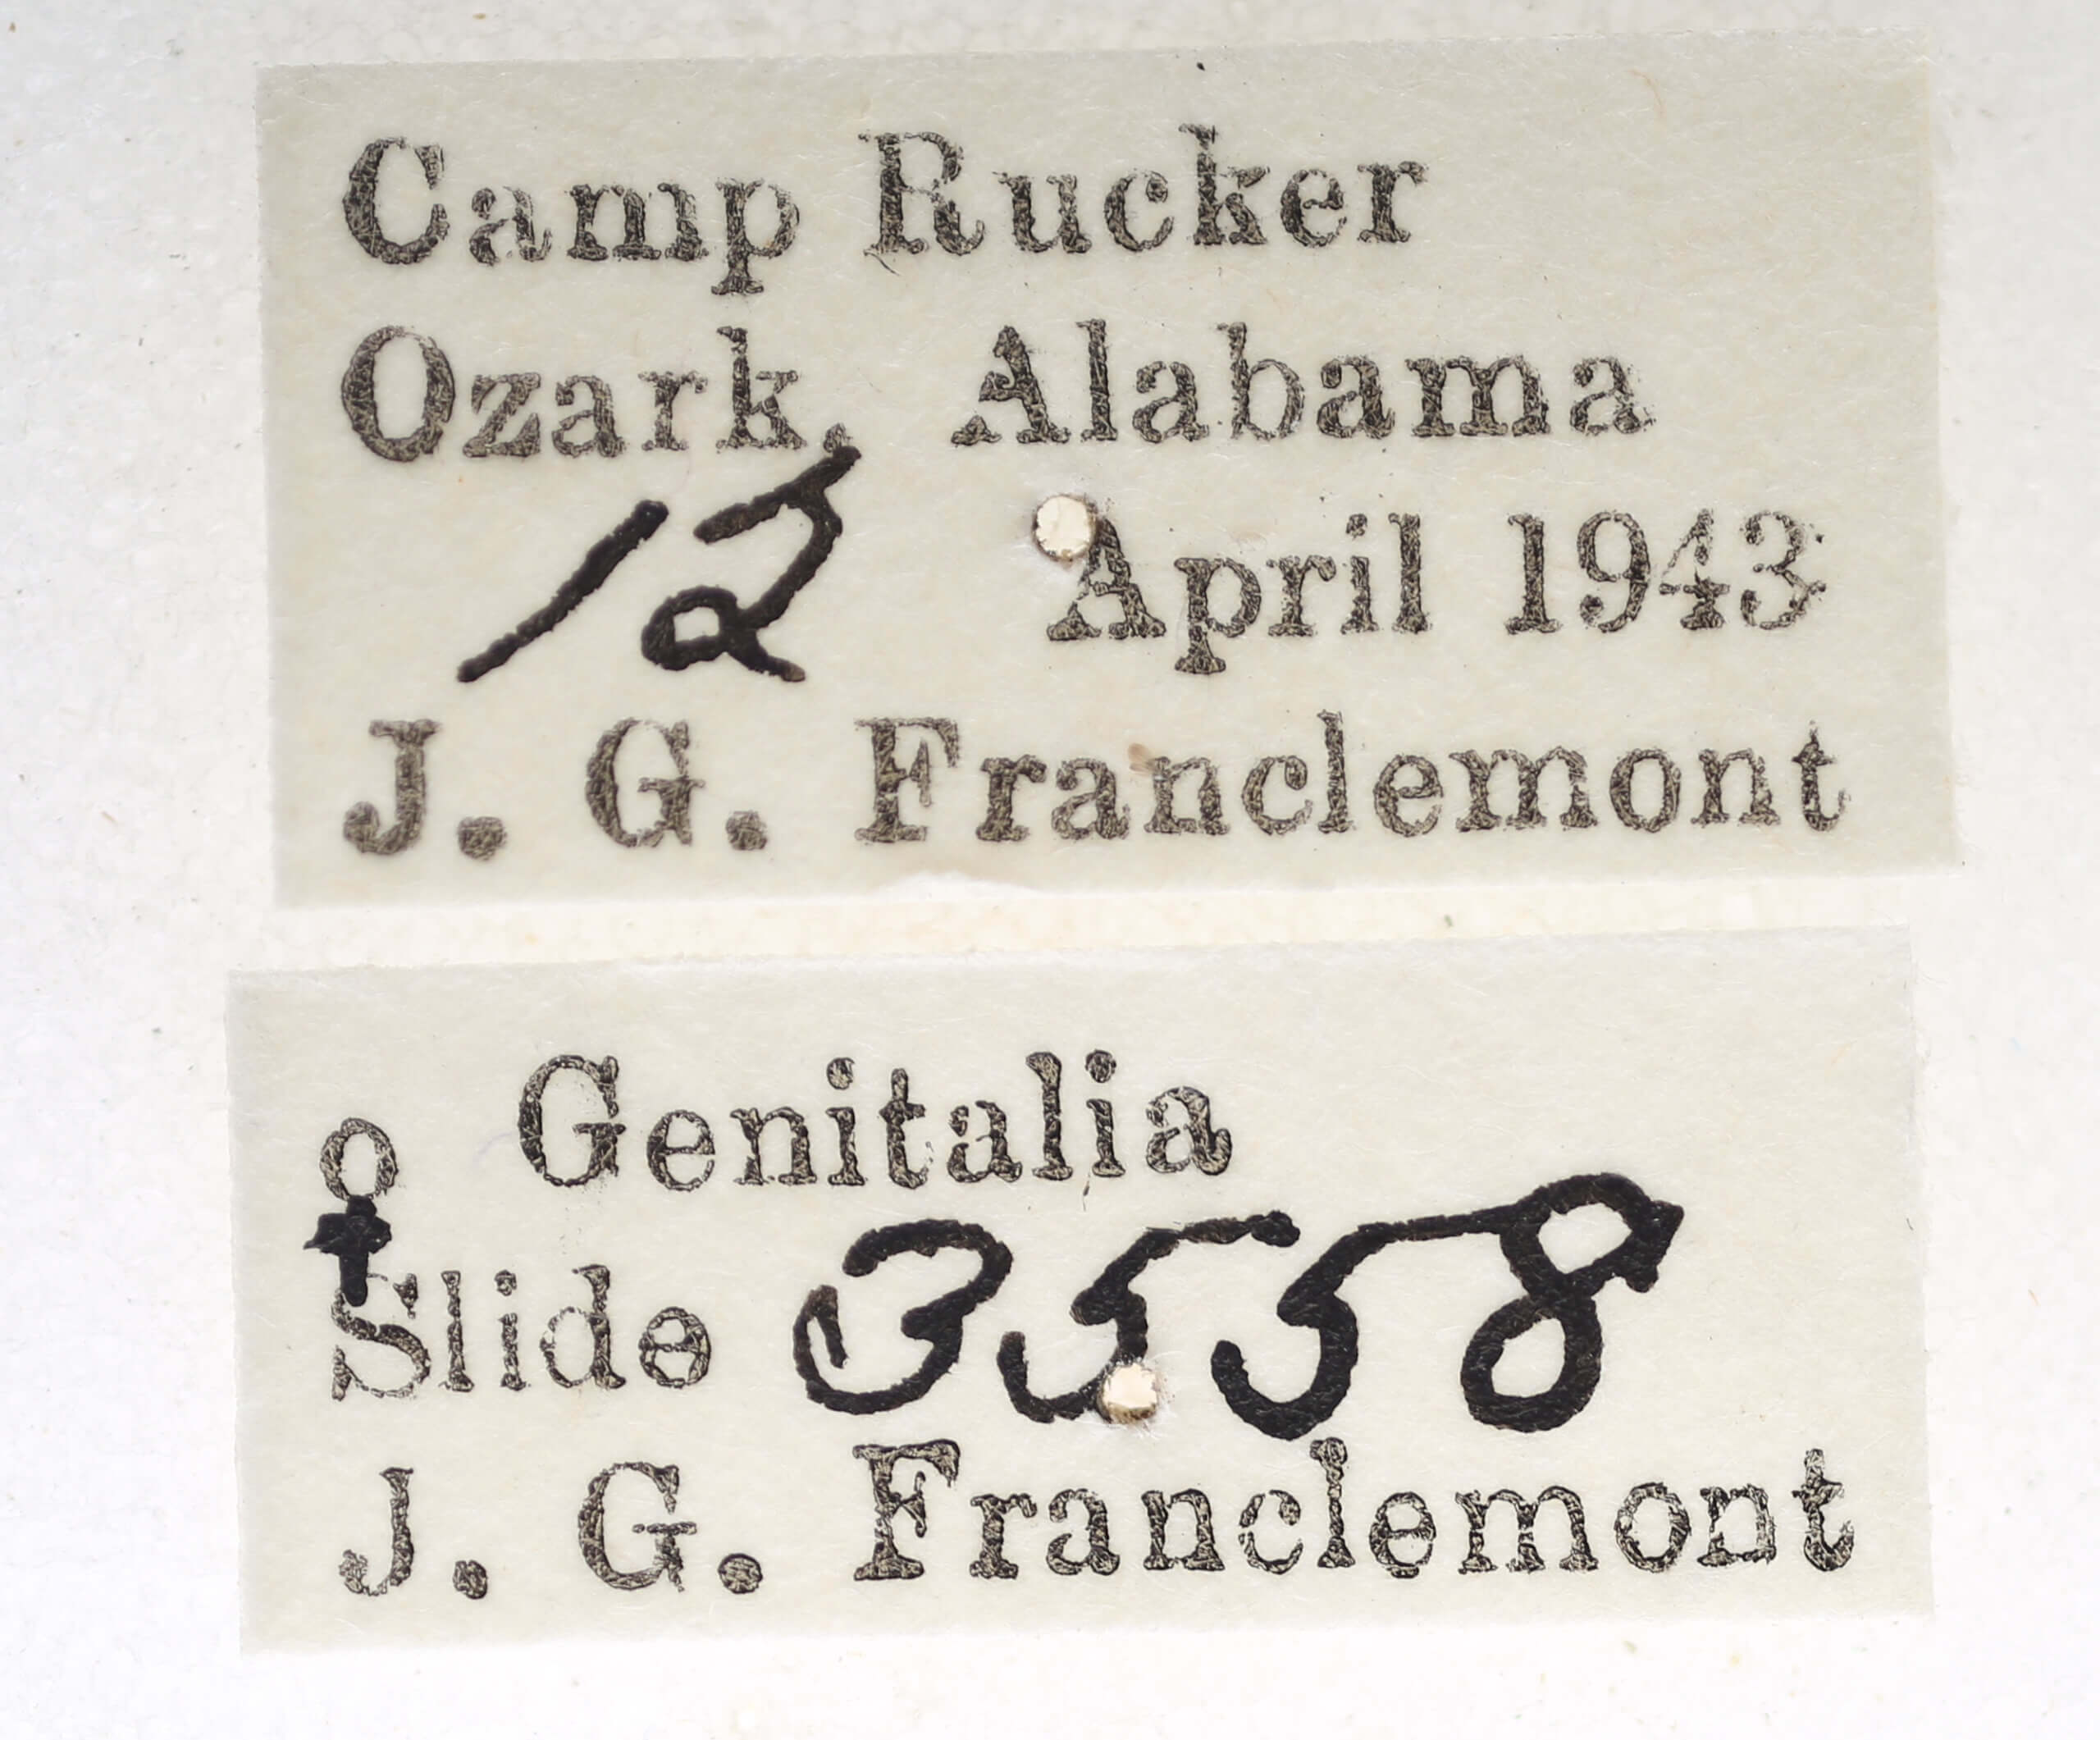 Camp Rucker
Ozark, Alabama
12 April 1943
J. G. Franclemont
♀ Genitalia
Slide 3558
J. G. Franclemont